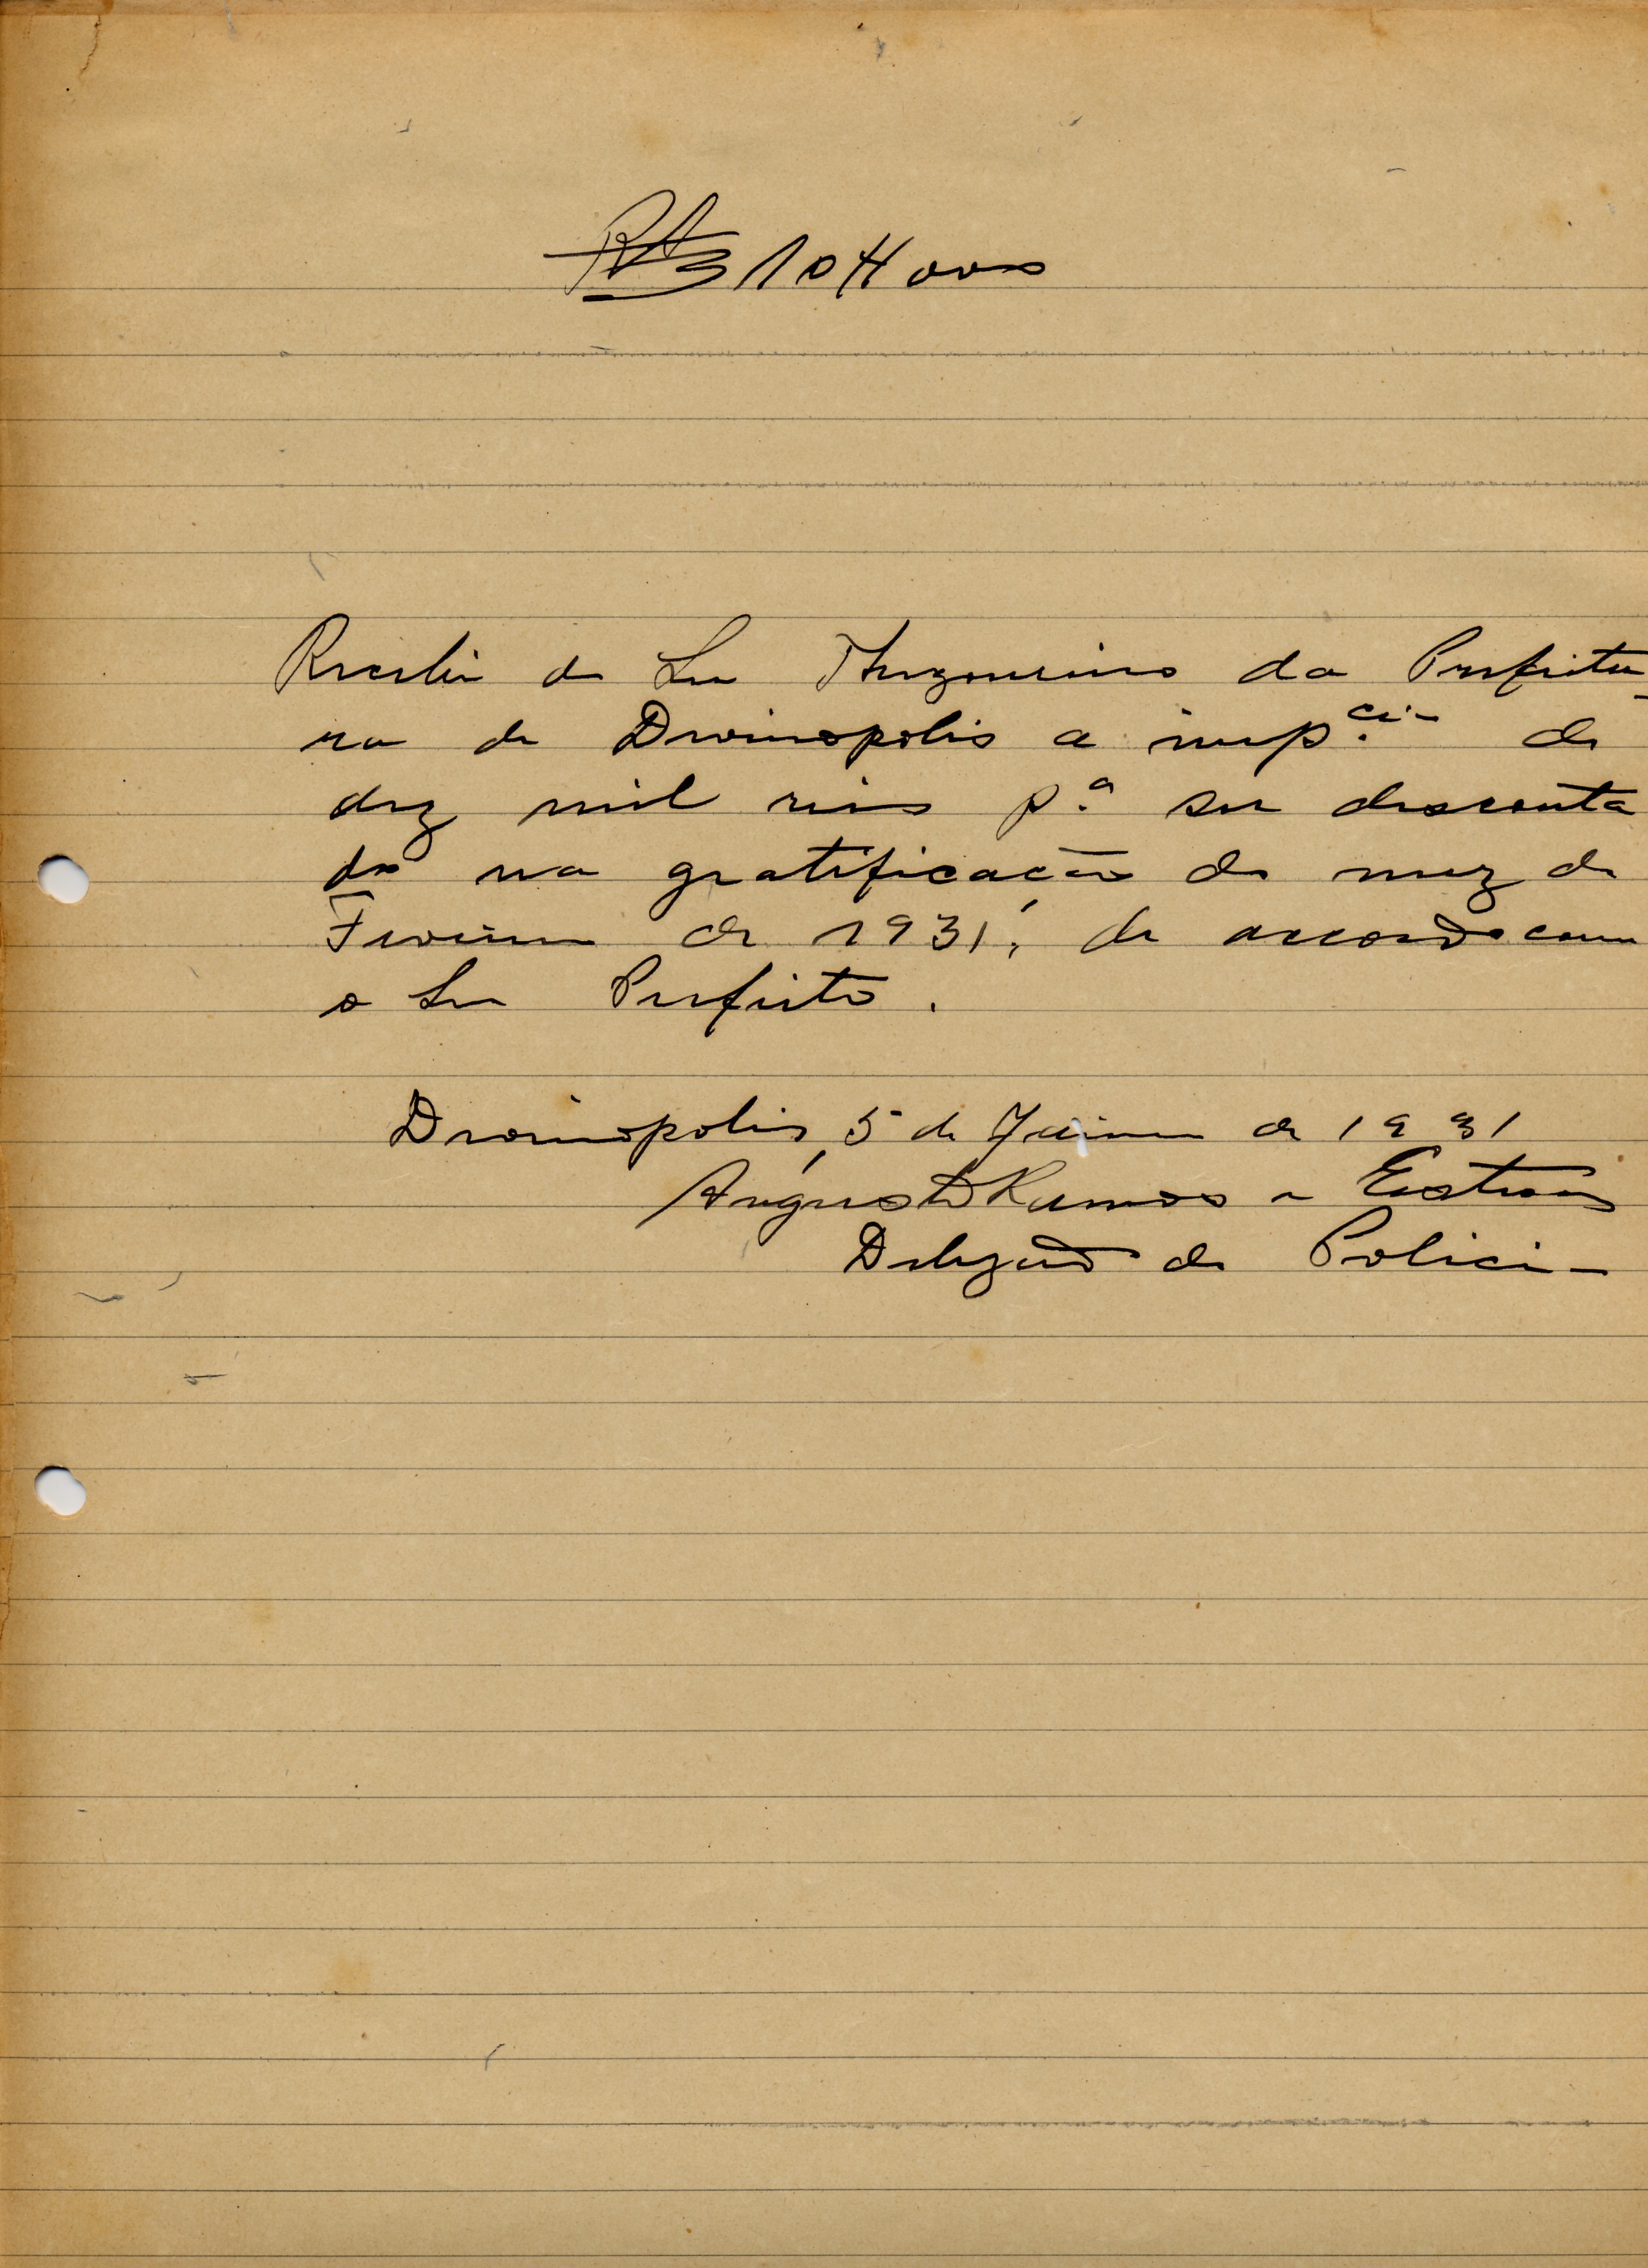 Rs 10$000
Recebi do Snr Thezoureiro da Prefeitu
ra de Divinopolis a imp.cia de
dez mil reis p.a ser desconta
do na gratificação do mez de
Fevereiro de 1931, de accordo com
o Snr Prefeito.
Divinopolis, 5 de de 1931
Augusto Ramos e
Delegado de Policia